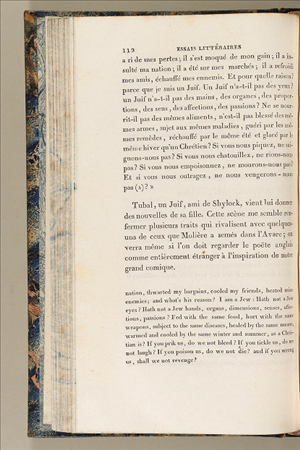 112 ESSAIS LITTÉRAIRES
a ri de mes pertes; il s'est moqué de mon gain; il a in-
sulté ma nation; il a été sur mes marchés; il a refroidi
mes amis, échauffé mes ennemis. Et pour quelle raison?
parce que je suis un Juif. Un Juif n'a-t-il pas des yeux?
un Juif n'a-t-il pas des mains, des organes, des propor-
tions, des sens, des affections, des passions? Ne se nour-
rit-il pas des mêmes aliments, n'est-il pas blessé des mê-
mes armes, sujet aux mêmes maladies, guéri par les mê-
mes remèdes, réchauffé par le même été et glacé par le
même hiver qu'un Chrétien? Si vous nous piquez, ne sai-
gnons-nous pas? Si vous nous chatouillez, ne rions-nous
pas? Si vous nous empoisonnez, ne mourrons-nous pas?
Et si vous nous outragez, ne nous vengerons-nous
pas (2)? »
Tubal, un Juif, ami de Shylock, vient lui donner
des nouvelles de sa fille. Cette scène me semble ren-
fermer plusieurs traits qui rivalisent avec quelques-
uns de ceux que Molière a semés dans l'Avare; on
verra même si l'on doit regarder le poëte anglais
comme entièrement étranger à l'inspiration de notre
grand comique.
nation, thwarted my bargains, cooled my friends, heated mine
enemies; and what's his reason? I am a Jew: Hath not a Jew
eyes? Hath not a Jew hands, organs, dimensions, senses, affec-
tions, passions? Fed with the same food, hurt with the same
weapons, subject to the same diseases, healed by the same means,
warmed and cooled by the same winter and summer, as a Chris-
tian is? If you prik us, do we not bleed? If you tickle us, do we
not laugh? If you poison us, do we not die? and if you wrong
us, shall we not revenge?